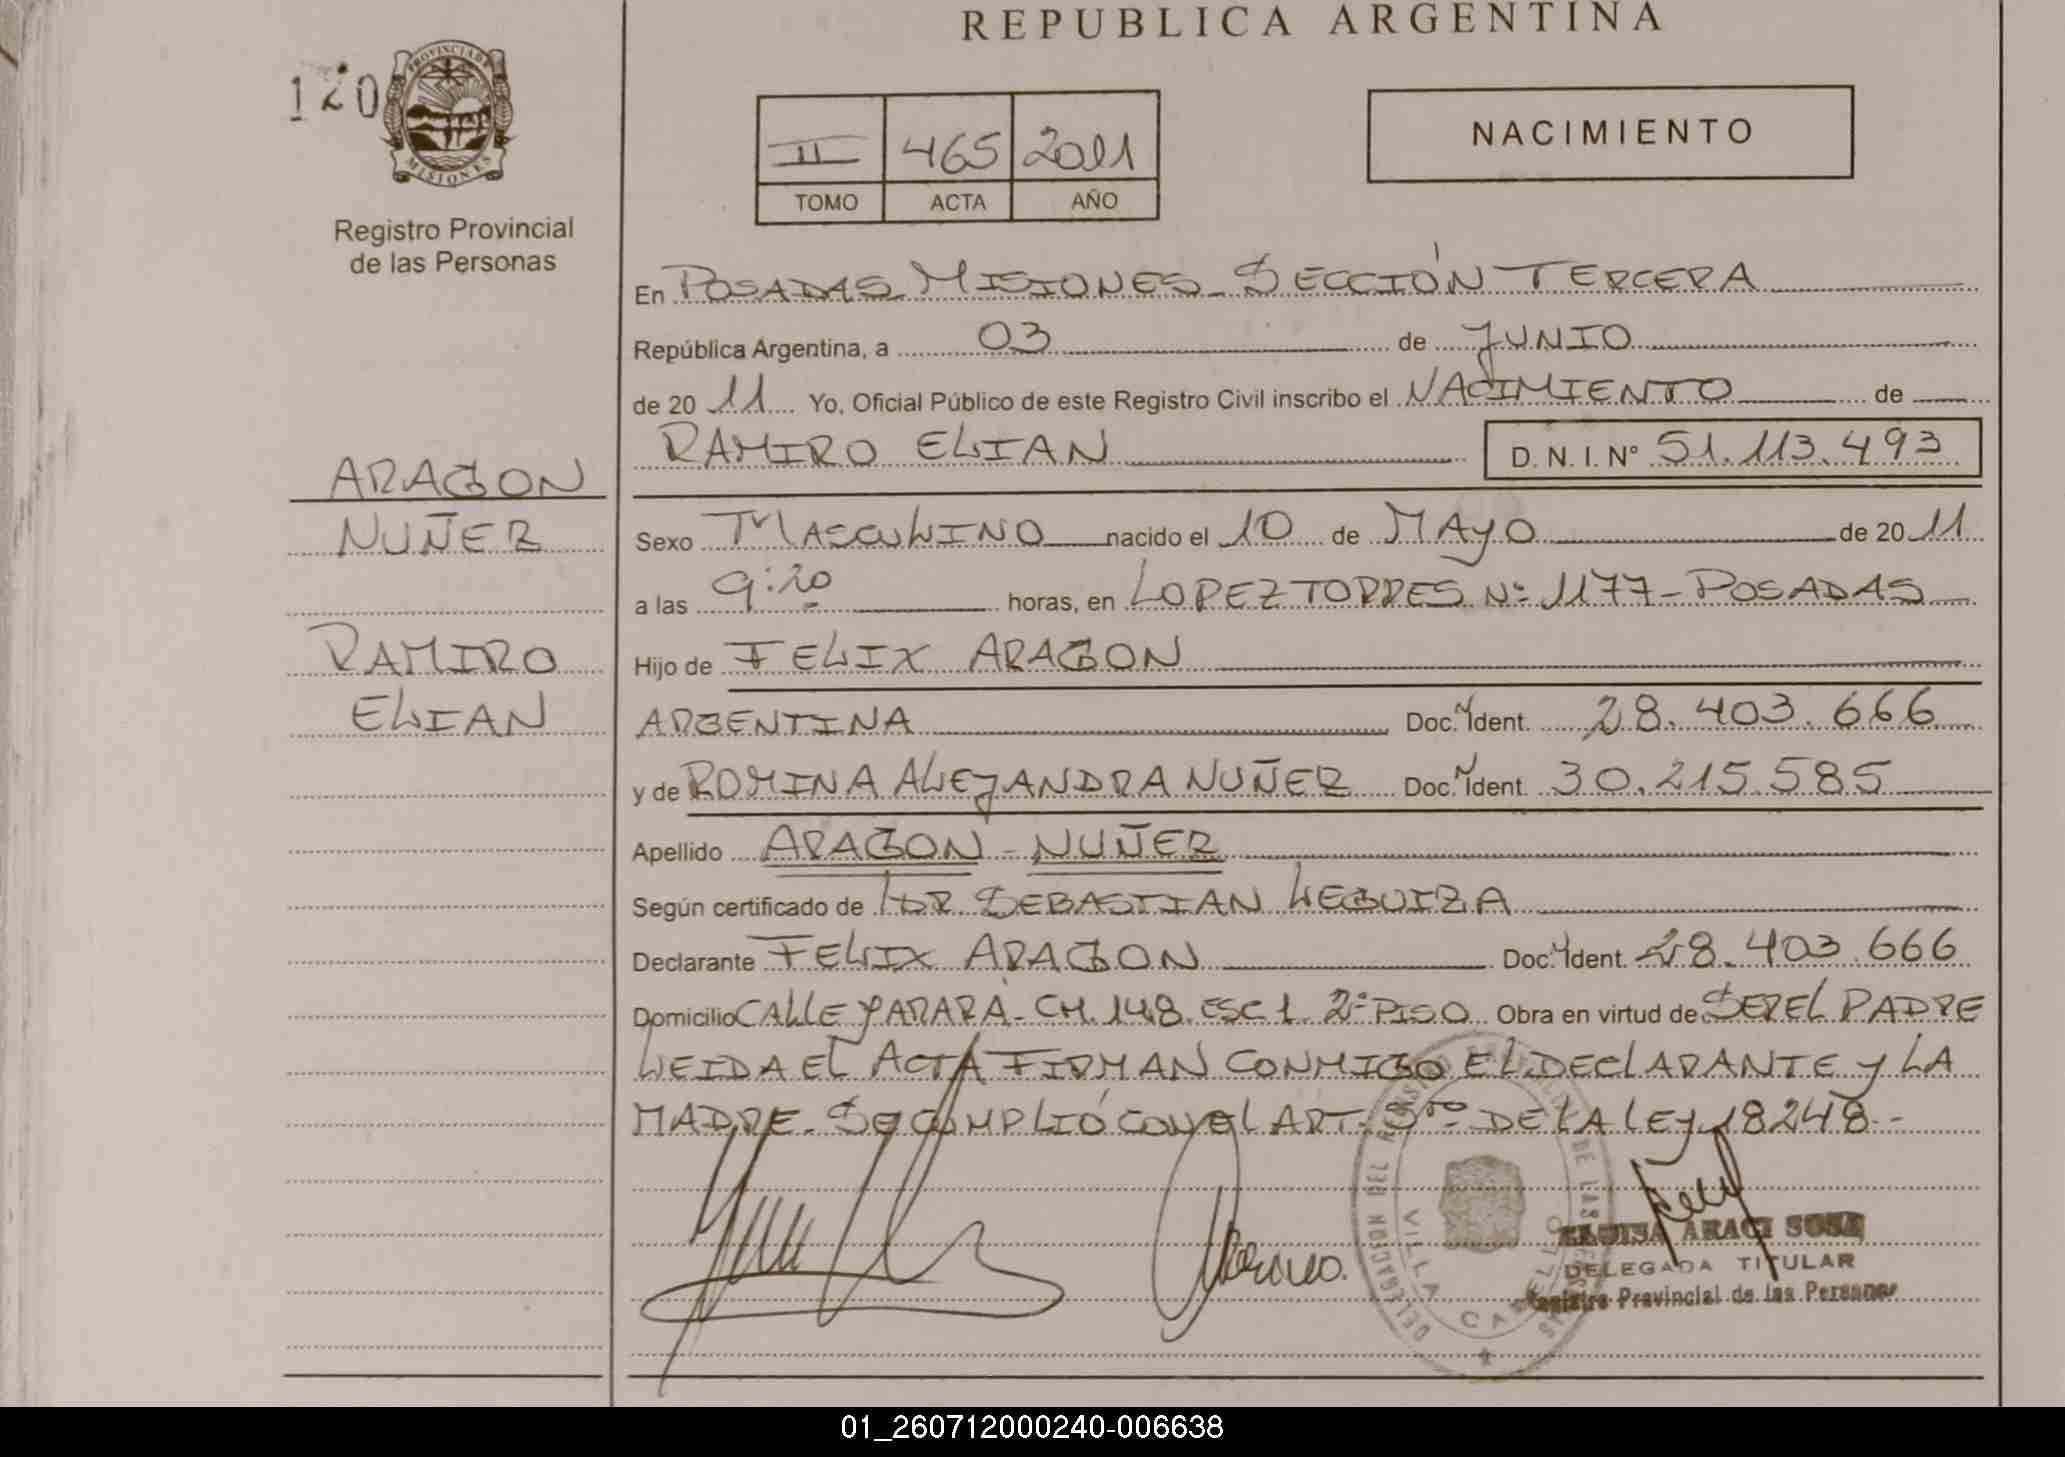 REPUBLICA ARGENTINA
120
PROVINCIA DE MISIONES
II 465 2011
TOMO ACTA AÑO
NACIMIENTO
Registro Provincial
de las Personas
En POSADAS MISIONES - SECCIÓN TERCERA
República Argentina, a 03 de JUNIO
de 20 11 Yo, Oficial Público de este Registro Civil inscribo el NACIMIENTO de
RAMIRO ELIAN D. N. I. Nº 51.113.493
ARAGON
NUÑEZ
RAMIRO
ELIAN
Sexo MASCULINO nacido el 10 de MAYO de 20 11
a las 9:20 horas, en LOPEZ TORRES Nº 1177 - POSADAS
Hijo de FELIX ARAGON
ARGENTINA Doc. Ident. 28.403.666
y de ROMINA ALEJANDRA NUÑEZ Doc. Ident. 30.215.585
Apellido ARAGON - NUÑEZ
Según certificado de DR SEBASTIAN LEGUIZA
Declarante FELIX ARAGON Doc. Ident. 28.403.666
Domicilio CALLE YARARÁ - CH. 148. ESC 1. 2º PISO Obra en virtud de SER EL PADRE
LEIDA EL ACTA FIRMAN CONMIGO EL DECLARANTE Y LA
MADRE. SE CUMPLIÓ CON EL ART. 5to DE LA LEY 18248.-
ELUISA ARACI SOSA
DELEGADA TITULAR
Registro Provincial de las Personas
01_260712000240-006638